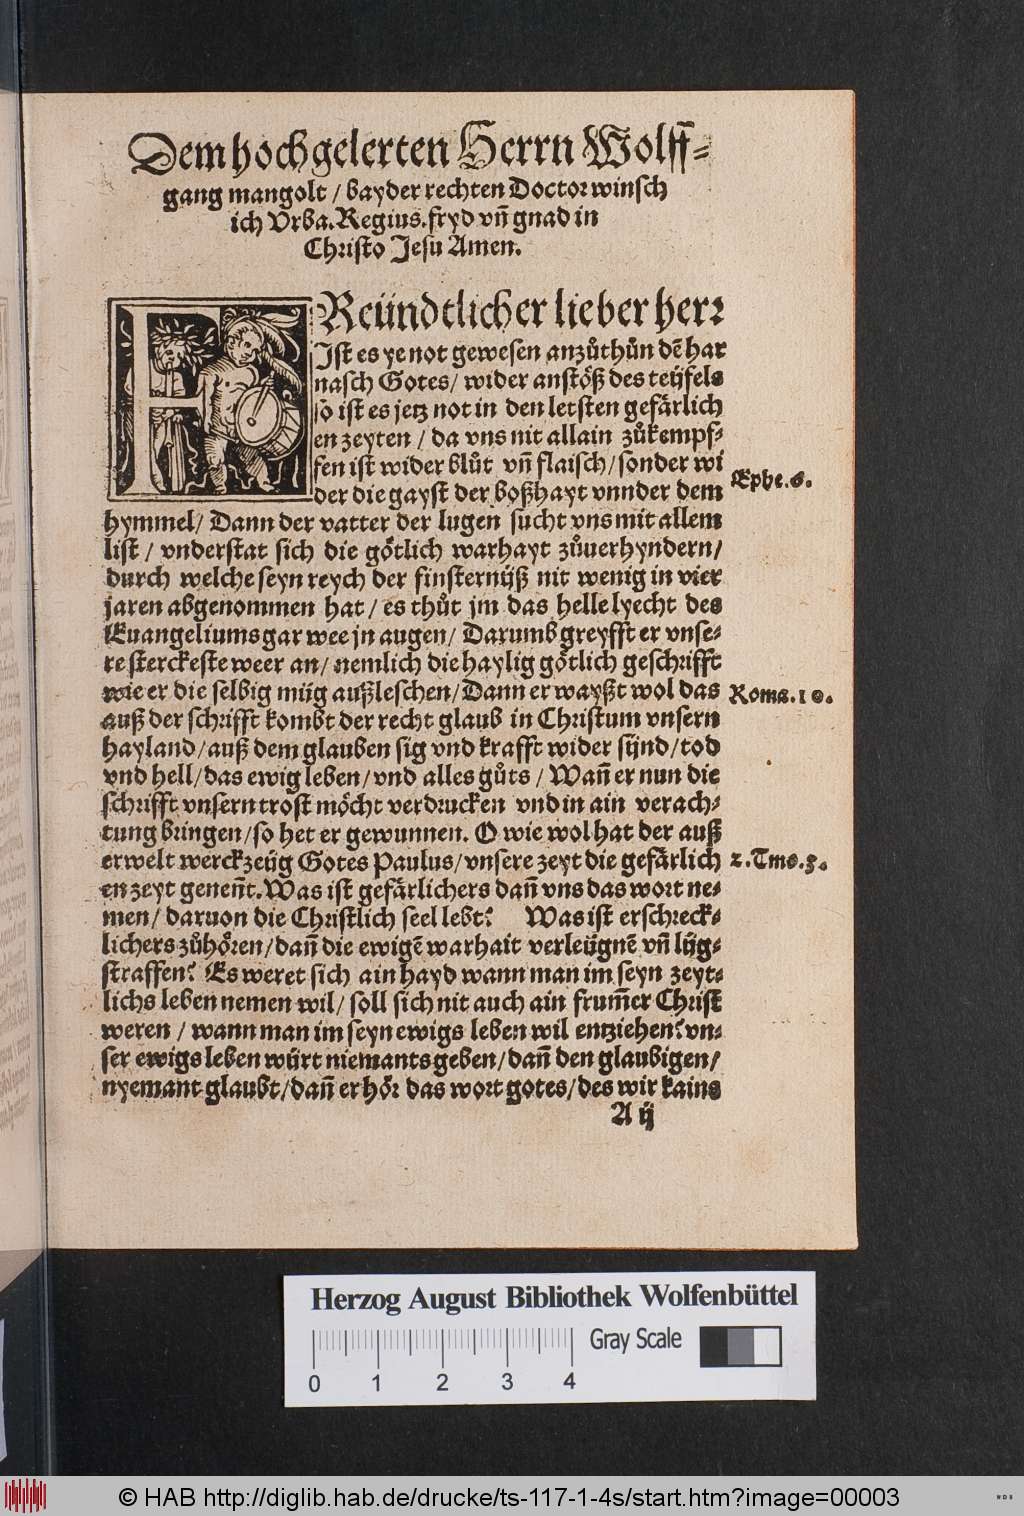 Dem hochgelerten Herrn Wolff⸗
gang mangolt / bayder rechten Doctor winsch
ich Vrba. Regius. fryd vñ gnad in
Christo Jesu Amen.
FReündtlicher lieber herr
Ist es ye not gewesen anzůthůn dē har
nasch Gotes / wider anstöß des teüfels
so ist es jetz not in den letsten gefärlich
en zeyten / da vns nit allain zůkempf⸗
fen ist wider blůt vñ flaisch / sonder wi
der die gayst der boßhayt vnnder dem
Ephe. 6.
hymmel / Dann der vatter der lugen sucht vns mit allem
list / vnderstat sich die götlich warhayt zůuerhyndern /
durch welche seyn reych der finsternüß nit wenig in vier
jaren abgenommen hat / es thůt jm das helle lyecht des
Euangeliums gar wee jn augen / Darumb greyfft er vnse⸗
re sterckeste weer an / nemlich die haylig götlich geschrifft
wie er die selbig müg außleschen / Dann er wayßt wol das
Roma. 10.
auß der schrifft kombt der recht glaub in Christum vnsern
hayland / auß dem glauben sig vnd krafft wider sünd / tod
vnd hell / das ewig leben / vnd alles gůts / Wañ er nun die
schrifft vnsern trost möcht verdrucken vnd in ain verach⸗
tung bringen / so het er gewunnen. O wie wol hat der auß
erwelt werckzeüg Gotes Paulus / vnsere zeyt die gefärlich
2. Tmo. 3.
en zeyt geneñt. Was ist gefärlichers dañ vns das wort ne⸗
men / daruon die Christlich seel lebt? Was ist erschreck⸗
lichers zůhören / dañ die ewigē warhait verleügnē vñ lüg⸗
straffen? Es weret sich ain hayd wann man im seyn zeyt⸗
lichs leben nemen wil / soll sich nit auch ain frum̄er Christ
weren / wann man im seyn ewigs leben wil entziehen? vn⸗
ser ewigs leben würt niemants geben / dañ den glaubigen /
nyemant glaubt / dañ er hör das wort gotes / des wir kains
A ij
Herzog August Bibliothek Wolfenbüttel
Gray Scale
0 1 2 3 4
© HAB http://diglib.hab.de/drucke/ts-117-1-4s/start.htm?image=00003